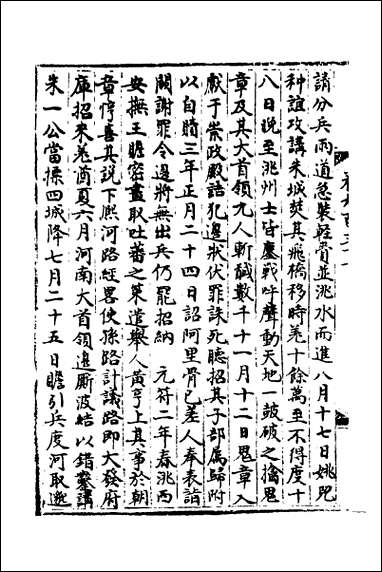 請分兵兩道急裝輕賫並洮水而進八月十七日姚兕
种誼攻講朱城焚其飛橋移時羗十餘萬至不得度十
八日晚至洮州士皆鏖戰呼聲動天地一鼓破之擒鬼
章及其大首領九人斬馘數千十一月十二日鬼章入
獻于崇政殿詰犯邊狀伏罪誅死聽招其子部属歸附
以自贖三年正月二十四日詔阿里骨已差人奉表詣
闕謝罪令邊將無出兵仍罷招納　元符二年春洮西
安撫王贍密畫取吐蕃之策遣舉人黃亨上其事於朝
章惇喜其說下熙河路經畧使孫路計議路即大發府
庫招來羗酋夏六月河南大首領邊厮波結以錯鑿講
朱一公當摽四城降七月二十五日贍引兵度河取邈